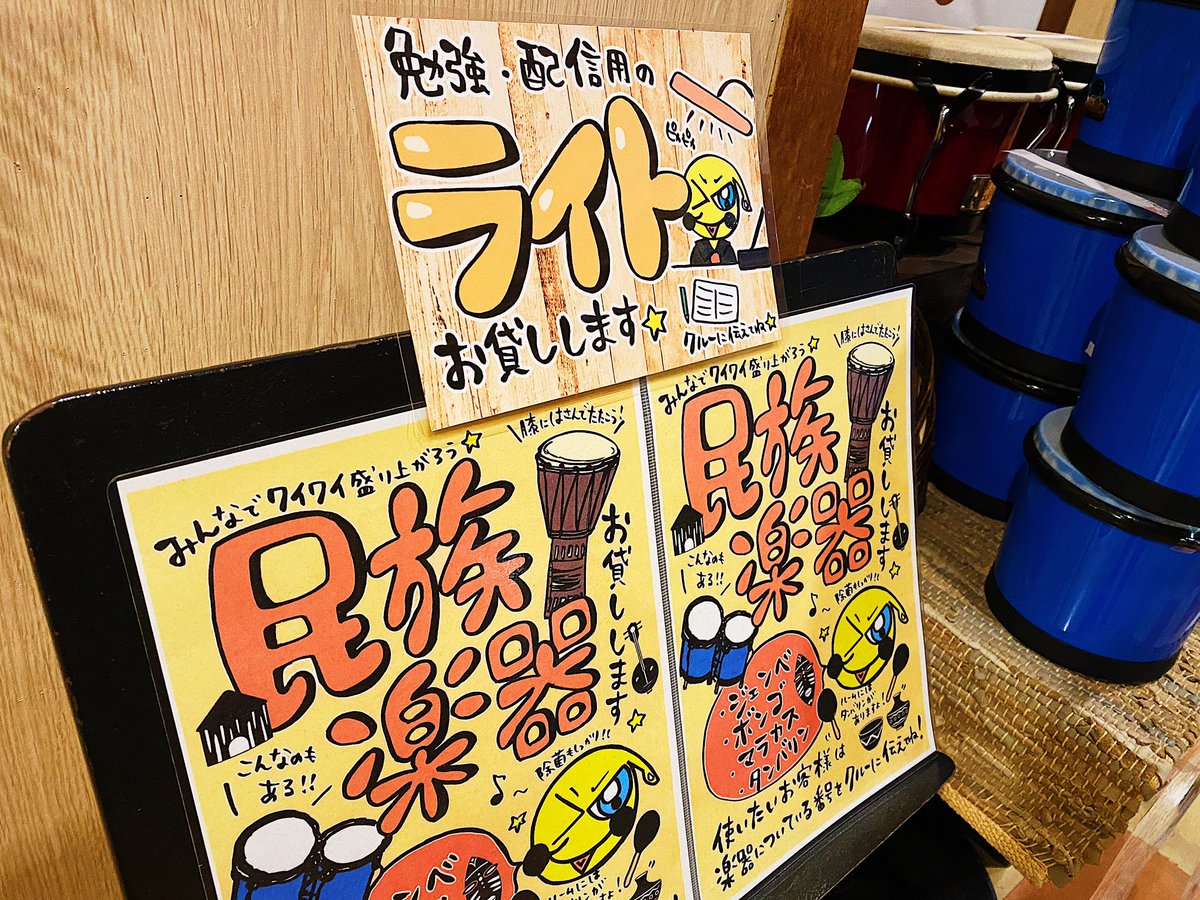 勉強・配信用の
ライト
ピカピカ
お貸しします☆
クルーに伝えてね☆
みんなでワイワイ盛り上がろう☆
膝にはさんでたたこう!
民族
楽器
お貸しします☆
こんなのも
ある!!
除菌もしっかり!!
ジェンベ
ルームには
みんなでワイワイ盛り上がろう☆
膝にはさんでたたこう!
民族
楽器
お貸しします☆
こんなのも
ある!!
除菌もしっかり!!
・ジェンベ
・ボンゴ
・マラカス
・タンバリン
ルームには
タンバリンが
ありますよ!
使いたいお客様は
楽器についている番号をクルーに伝えてね!